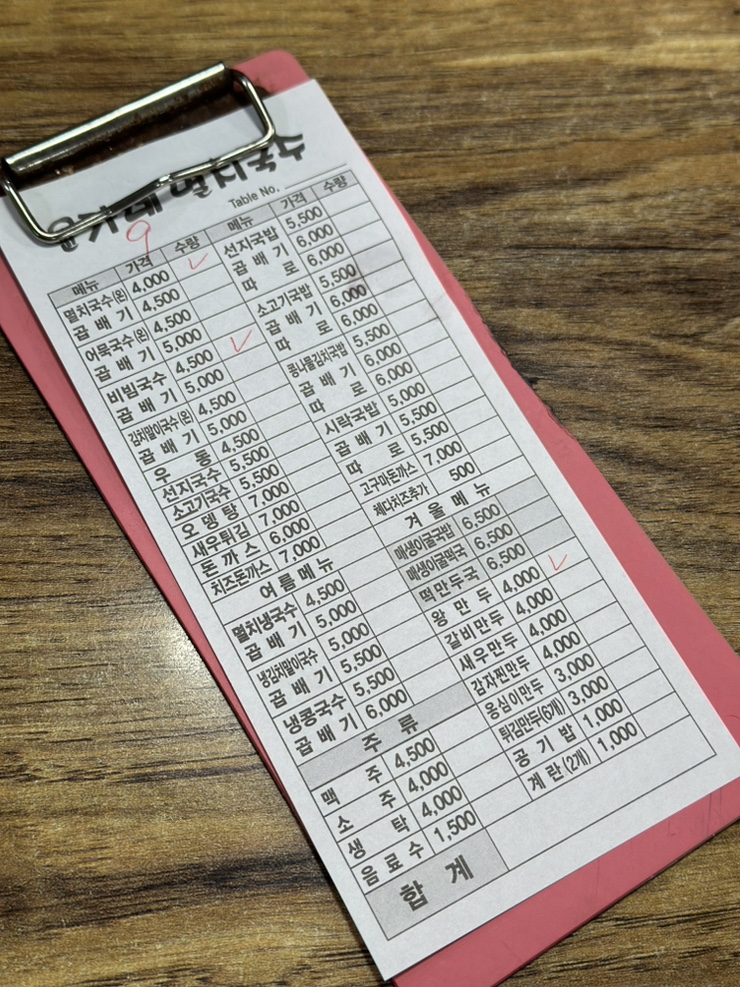 윤가네 멸치국수
Table No.
9
메뉴 가격 수량
멸치국수(온) 4,000 ✓
곱배기 4,500
어묵국수(온) 4,500
곱배기 5,000
비빔국수 4,500 ✓
곱배기 5,000
김치말이국수(온) 4,500
곱배기 5,000
우동 4,500
선지국수 5,500
소고기국수 5,500
오뎅탕 7,000
새우튀김 7,000
돈까스 6,000
치즈돈까스 7,000
여름메뉴
멸치냉국수 4,500
곱배기 5,000
냉김치말이국수 5,000
곱배기 5,500
냉콩국수 5,500
곱배기 6,000
주류
맥주 4,500
소주 4,000
생탁 4,000
음료수 1,500
합계
메뉴 가격 수량
선지국밥 5,500
곱배기 6,000
따로 6,000
소고기국밥 5,500
곱배기 6,000
따로 6,000
콩나물김치국밥 5,500
곱배기 6,000
따로 6,000
시락국밥 5,000
곱배기 5,500
따로 5,500
고구마돈까스 7,000
체다치즈추가 500
겨울메뉴
매생이굴국밥 6,500
매생이굴떡국 6,500
떡만두국 6,500
왕만두 4,000 ✓
갈비만두 4,000
새우만두 4,000
감자찐만두 4,000
옹심이만두 3,000
튀김만두(6개) 3,000
공기밥 1,000
계란(2개) 1,000